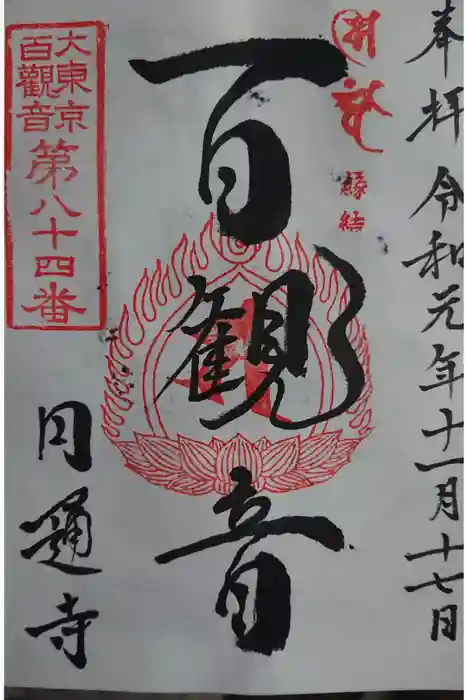 奉拝
令和元年十一月十七日
縁結
百觀音
大東京
百觀音
第八十四番
円通寺